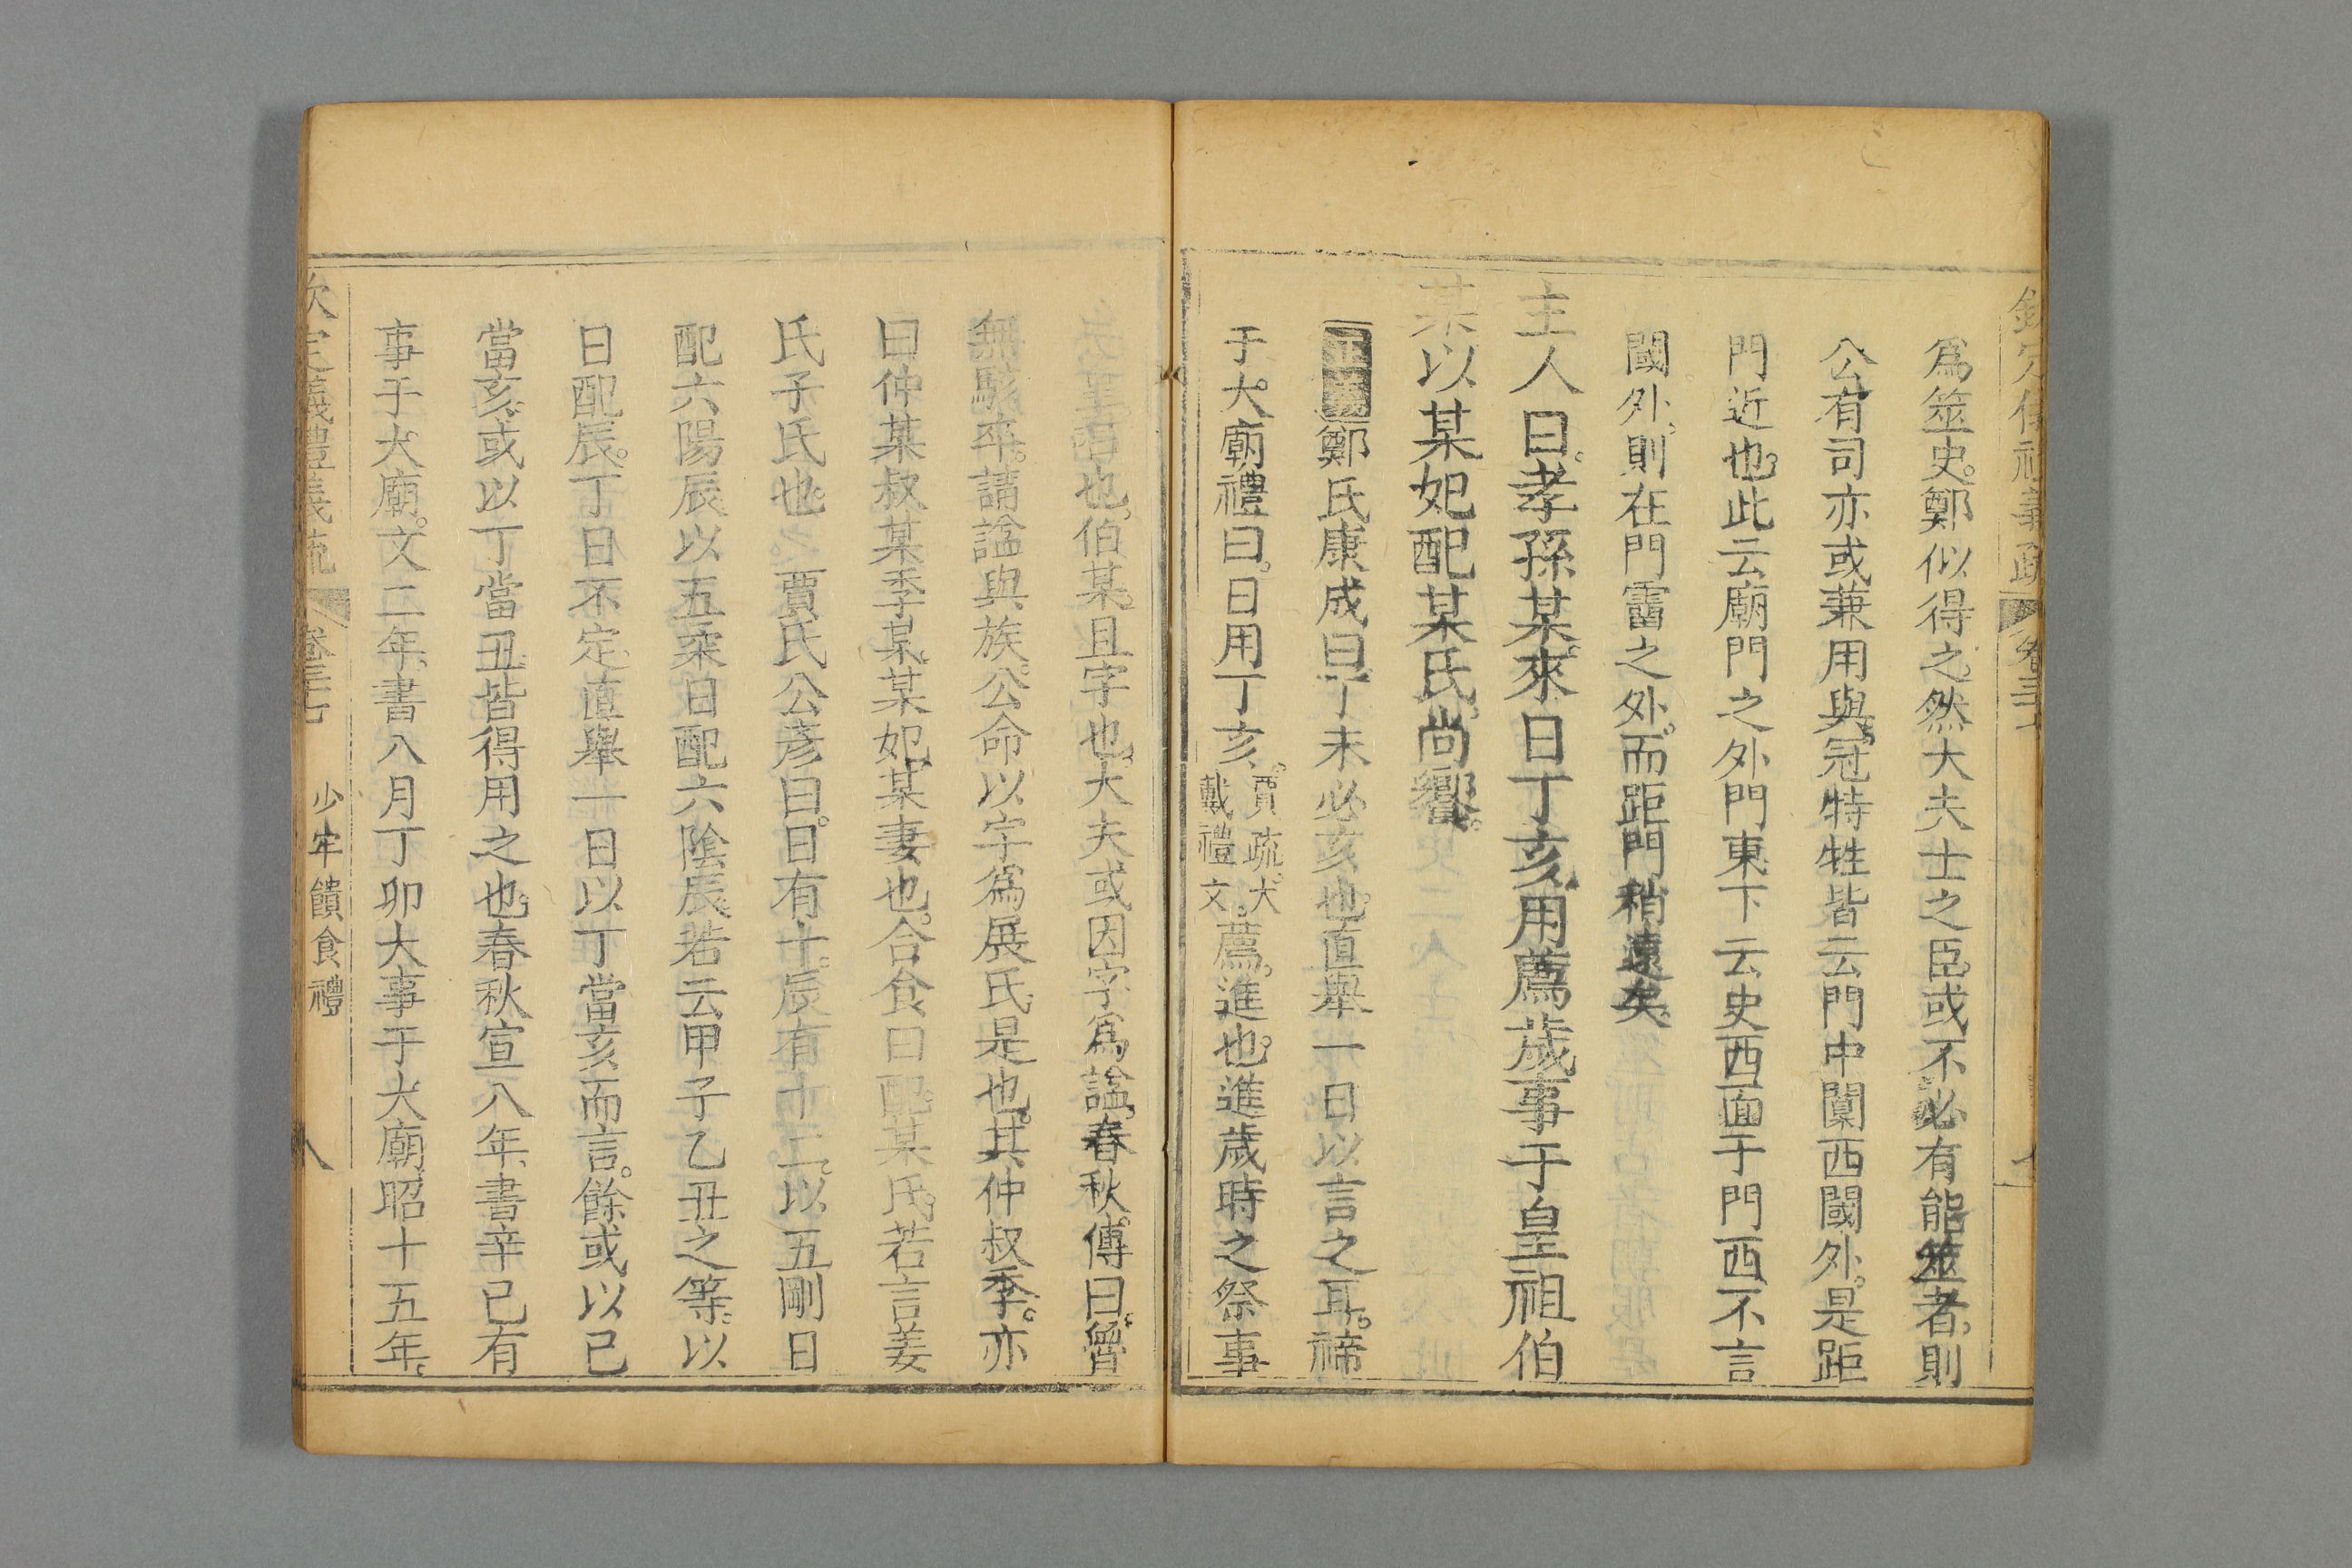 爲筮史。鄭似得之。然大夫士之臣。或不必有能筮者。則
公有司亦或兼用與。冠特牲皆云門中闑西閾外。是距
門近也。此云廟門之外門東。下云史西面于門西。不言
閾外。則在門霤之外。而距門稍遠矣。
主人曰。孝孫某。來日丁亥。用薦歲事于皇祖伯
某。以某妃配某氏。尚饗。
正義鄭氏康成曰。丁未必亥也。直舉一日以言之耳。禘
于大廟禮曰。日用丁亥。賈疏。大
戴禮文。薦。進也。進歲時之祭事
也。伯某。且字也。大夫或因字爲諡。春秋傳曰。魯
無駭卒。請諡與族。公命以字爲展氏是也。其仲叔季。亦
曰仲某叔某季某。某妃。某妻也。合食曰配。某氏。若言姜
氏子氏也。 賈氏公彥曰。日有十。辰有十二。以五剛日
配六陽辰。以五柔日配六陰辰。若云甲子乙丑之等。以
日配辰。丁日不定。直舉一日以丁當亥而言。餘或以己
當亥。或以丁當丑。皆得用之也。春秋宣八年。書辛巳有
事于大廟。文二年。書八月丁卯大事于大廟。昭十五年。
欽定義禮義疏 卷三十七 少牢饋食禮 八